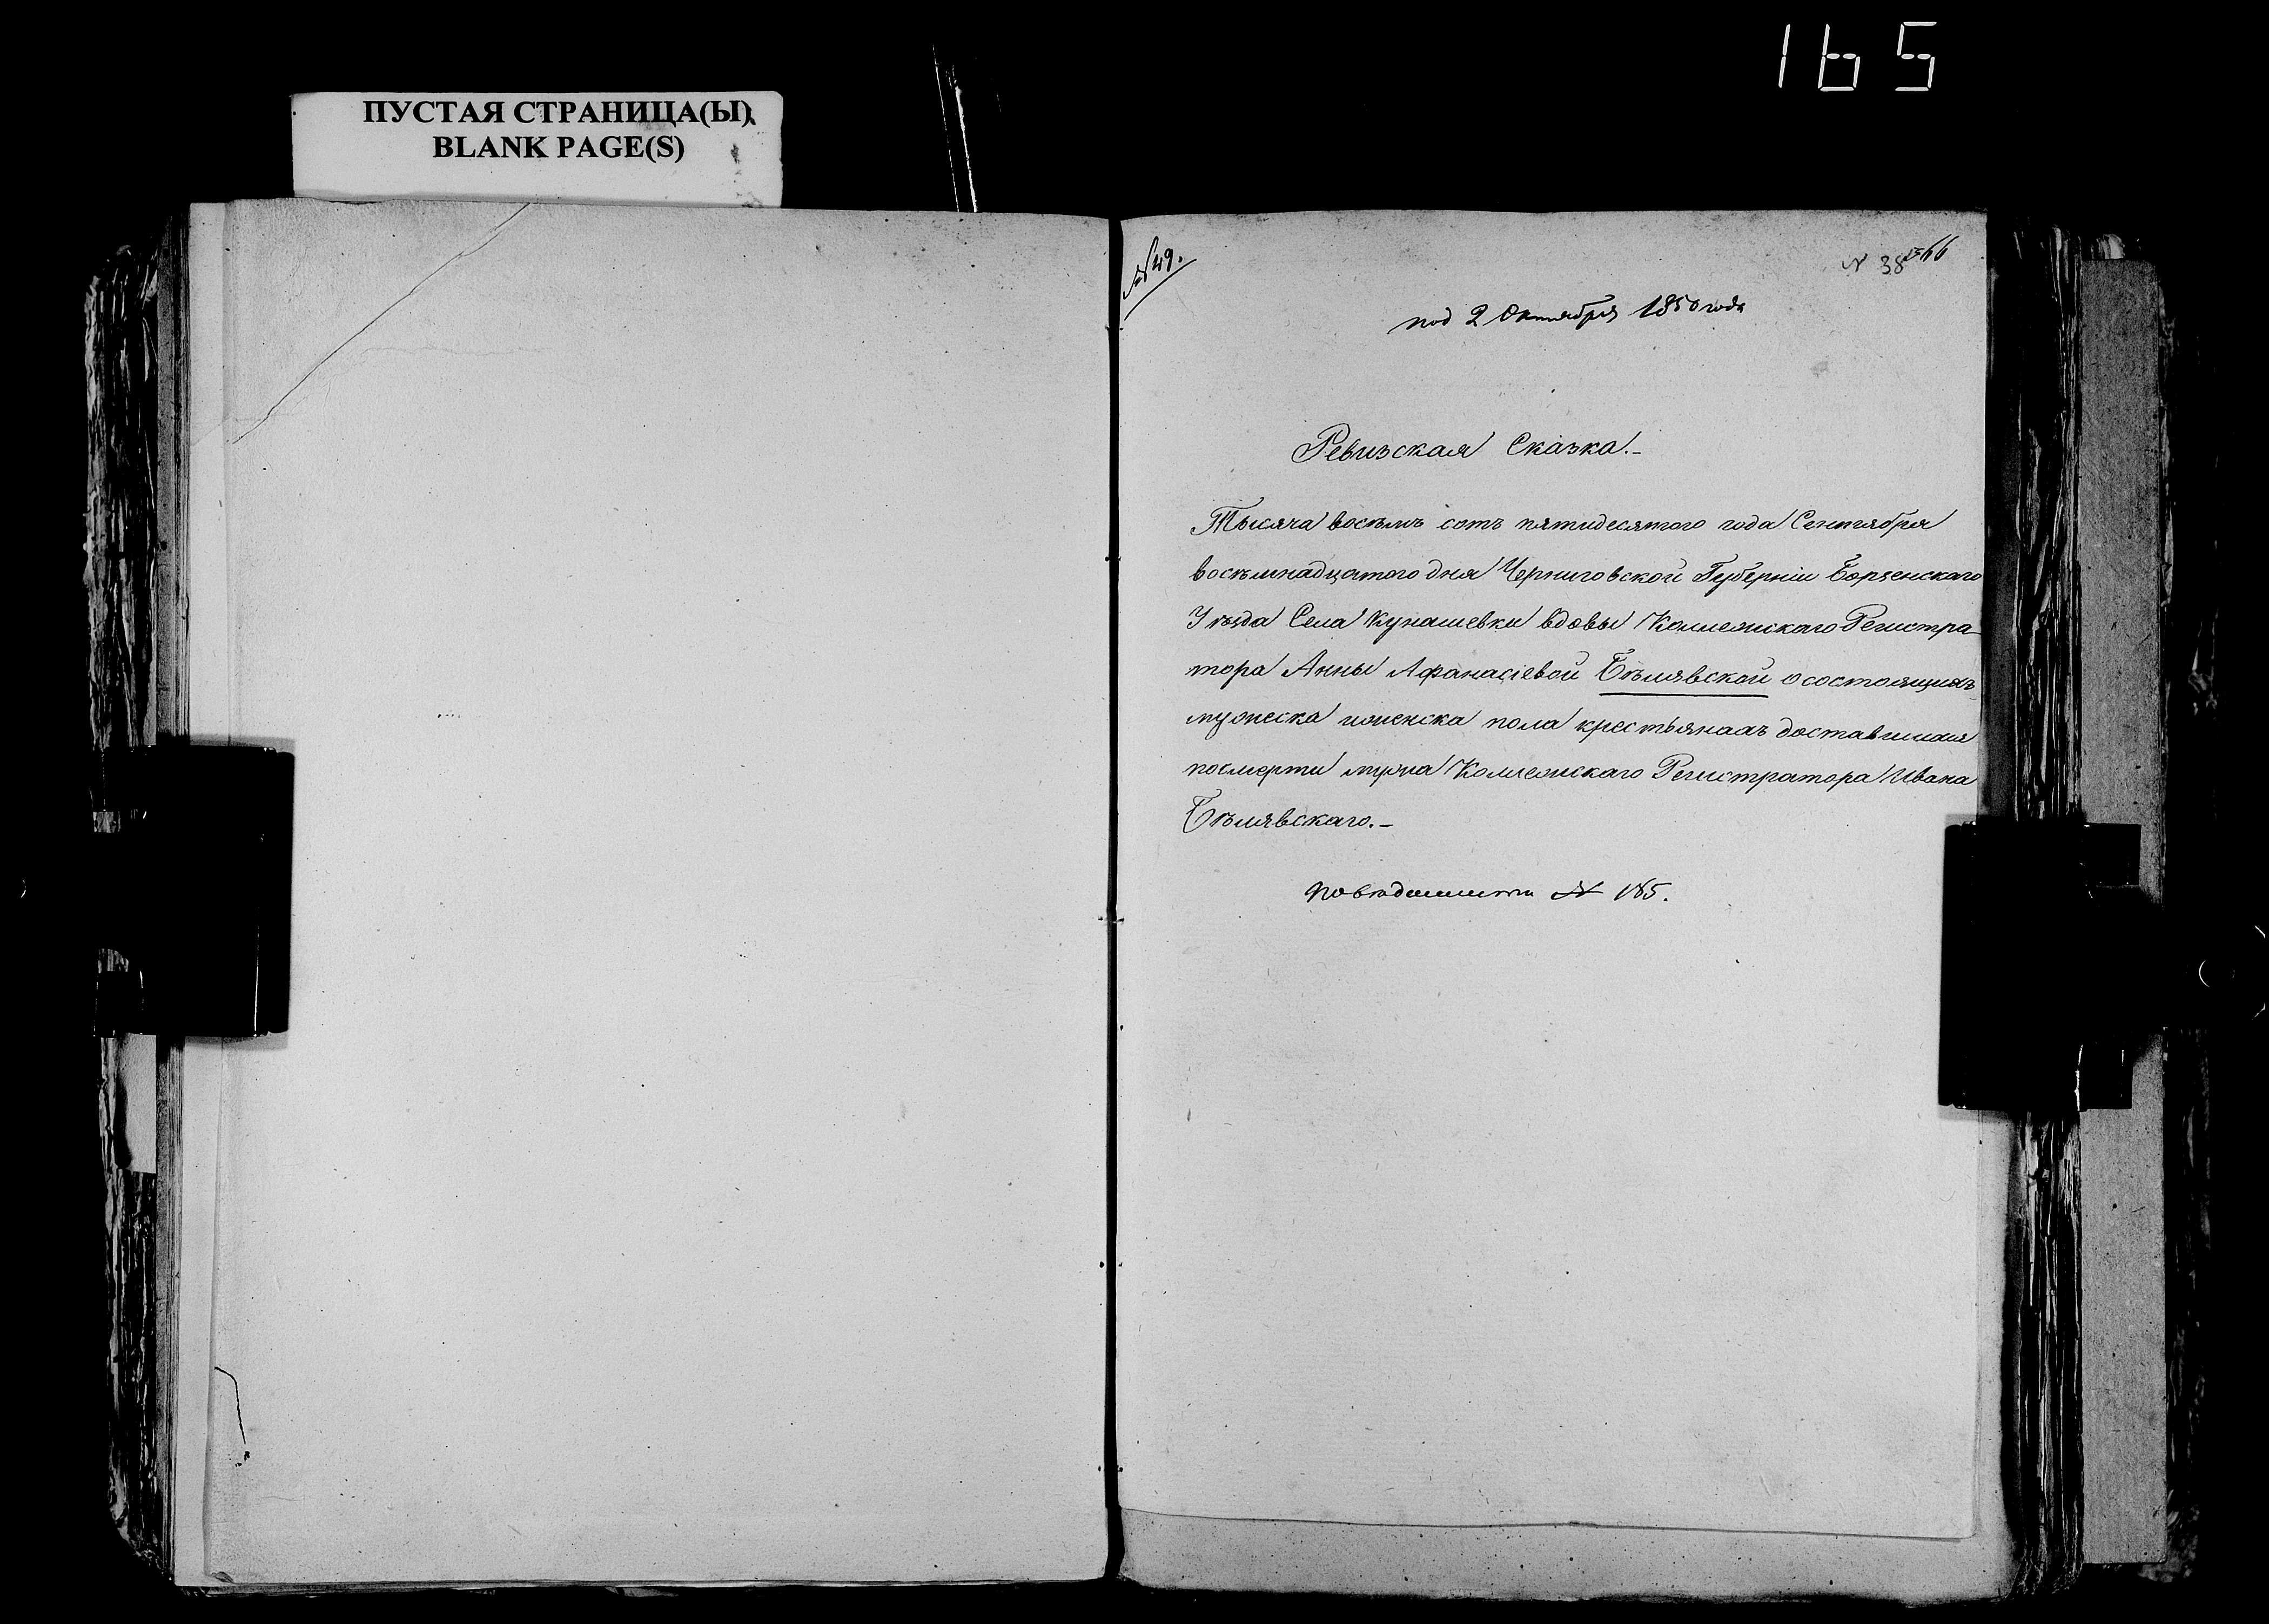 165
ПУСТАЯ СТРАНИЦА(Ы)
BLANK PAGE(S)
№ 49.
№ 38
под 2 Октября 1850 года
Ревизская Сказка.-
Тысяча восемь сотъ пятидесятого года Сентября
восемнадцатого дня Черниговской Губерніи Борзенскаго
Уѣзда Села Кунашевки вдовы Коллежскаго Регистра-
тора Анны Афанасіевой Бѣлявской о состоящихъ
мужеска и женска пола крестьянахъ доставшихся
по смерти мужа Коллежскаго Регистратора Ивана
Бѣлявскаго.-
по вѣдомости № 185.